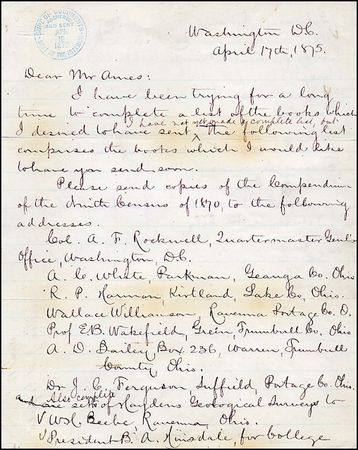 Washington D.C.
April 17th, 1875.
Dear Mr Ames:
I have been trying for a long
time to complete a list of the books which
I have not yet made a complete list, but
I desired to have sent, the following list
comprises the books which I would like
to have you send soon.
Please send copies of the Compendium
of the Ninth Census of 1870, to the following
addresses.
Col. A. F. Rockwell, Quartermaster Genl's
Office, Washington, D.C.
A. C. White, Parkman, Geauga Co. Ohio.
R. P. Harman, Kirtland, Lake Co, Ohio.
Wallace Williamson, Ravenna Portage Co. O.
Prof E.B. Wakefield, Green, Trumbull Co. Ohio.
A. D. Bailey Box 236, Warren, Trumbull
County, Ohio.
Dr J. C. Ferguson, Suffield, Portage Co. Ohio
Also complete
and are sets of Haydens Geological Surveys to
V W.S.C. Beebe, Ravenna, Ohio.
V President B. A. Hinsdale, for College